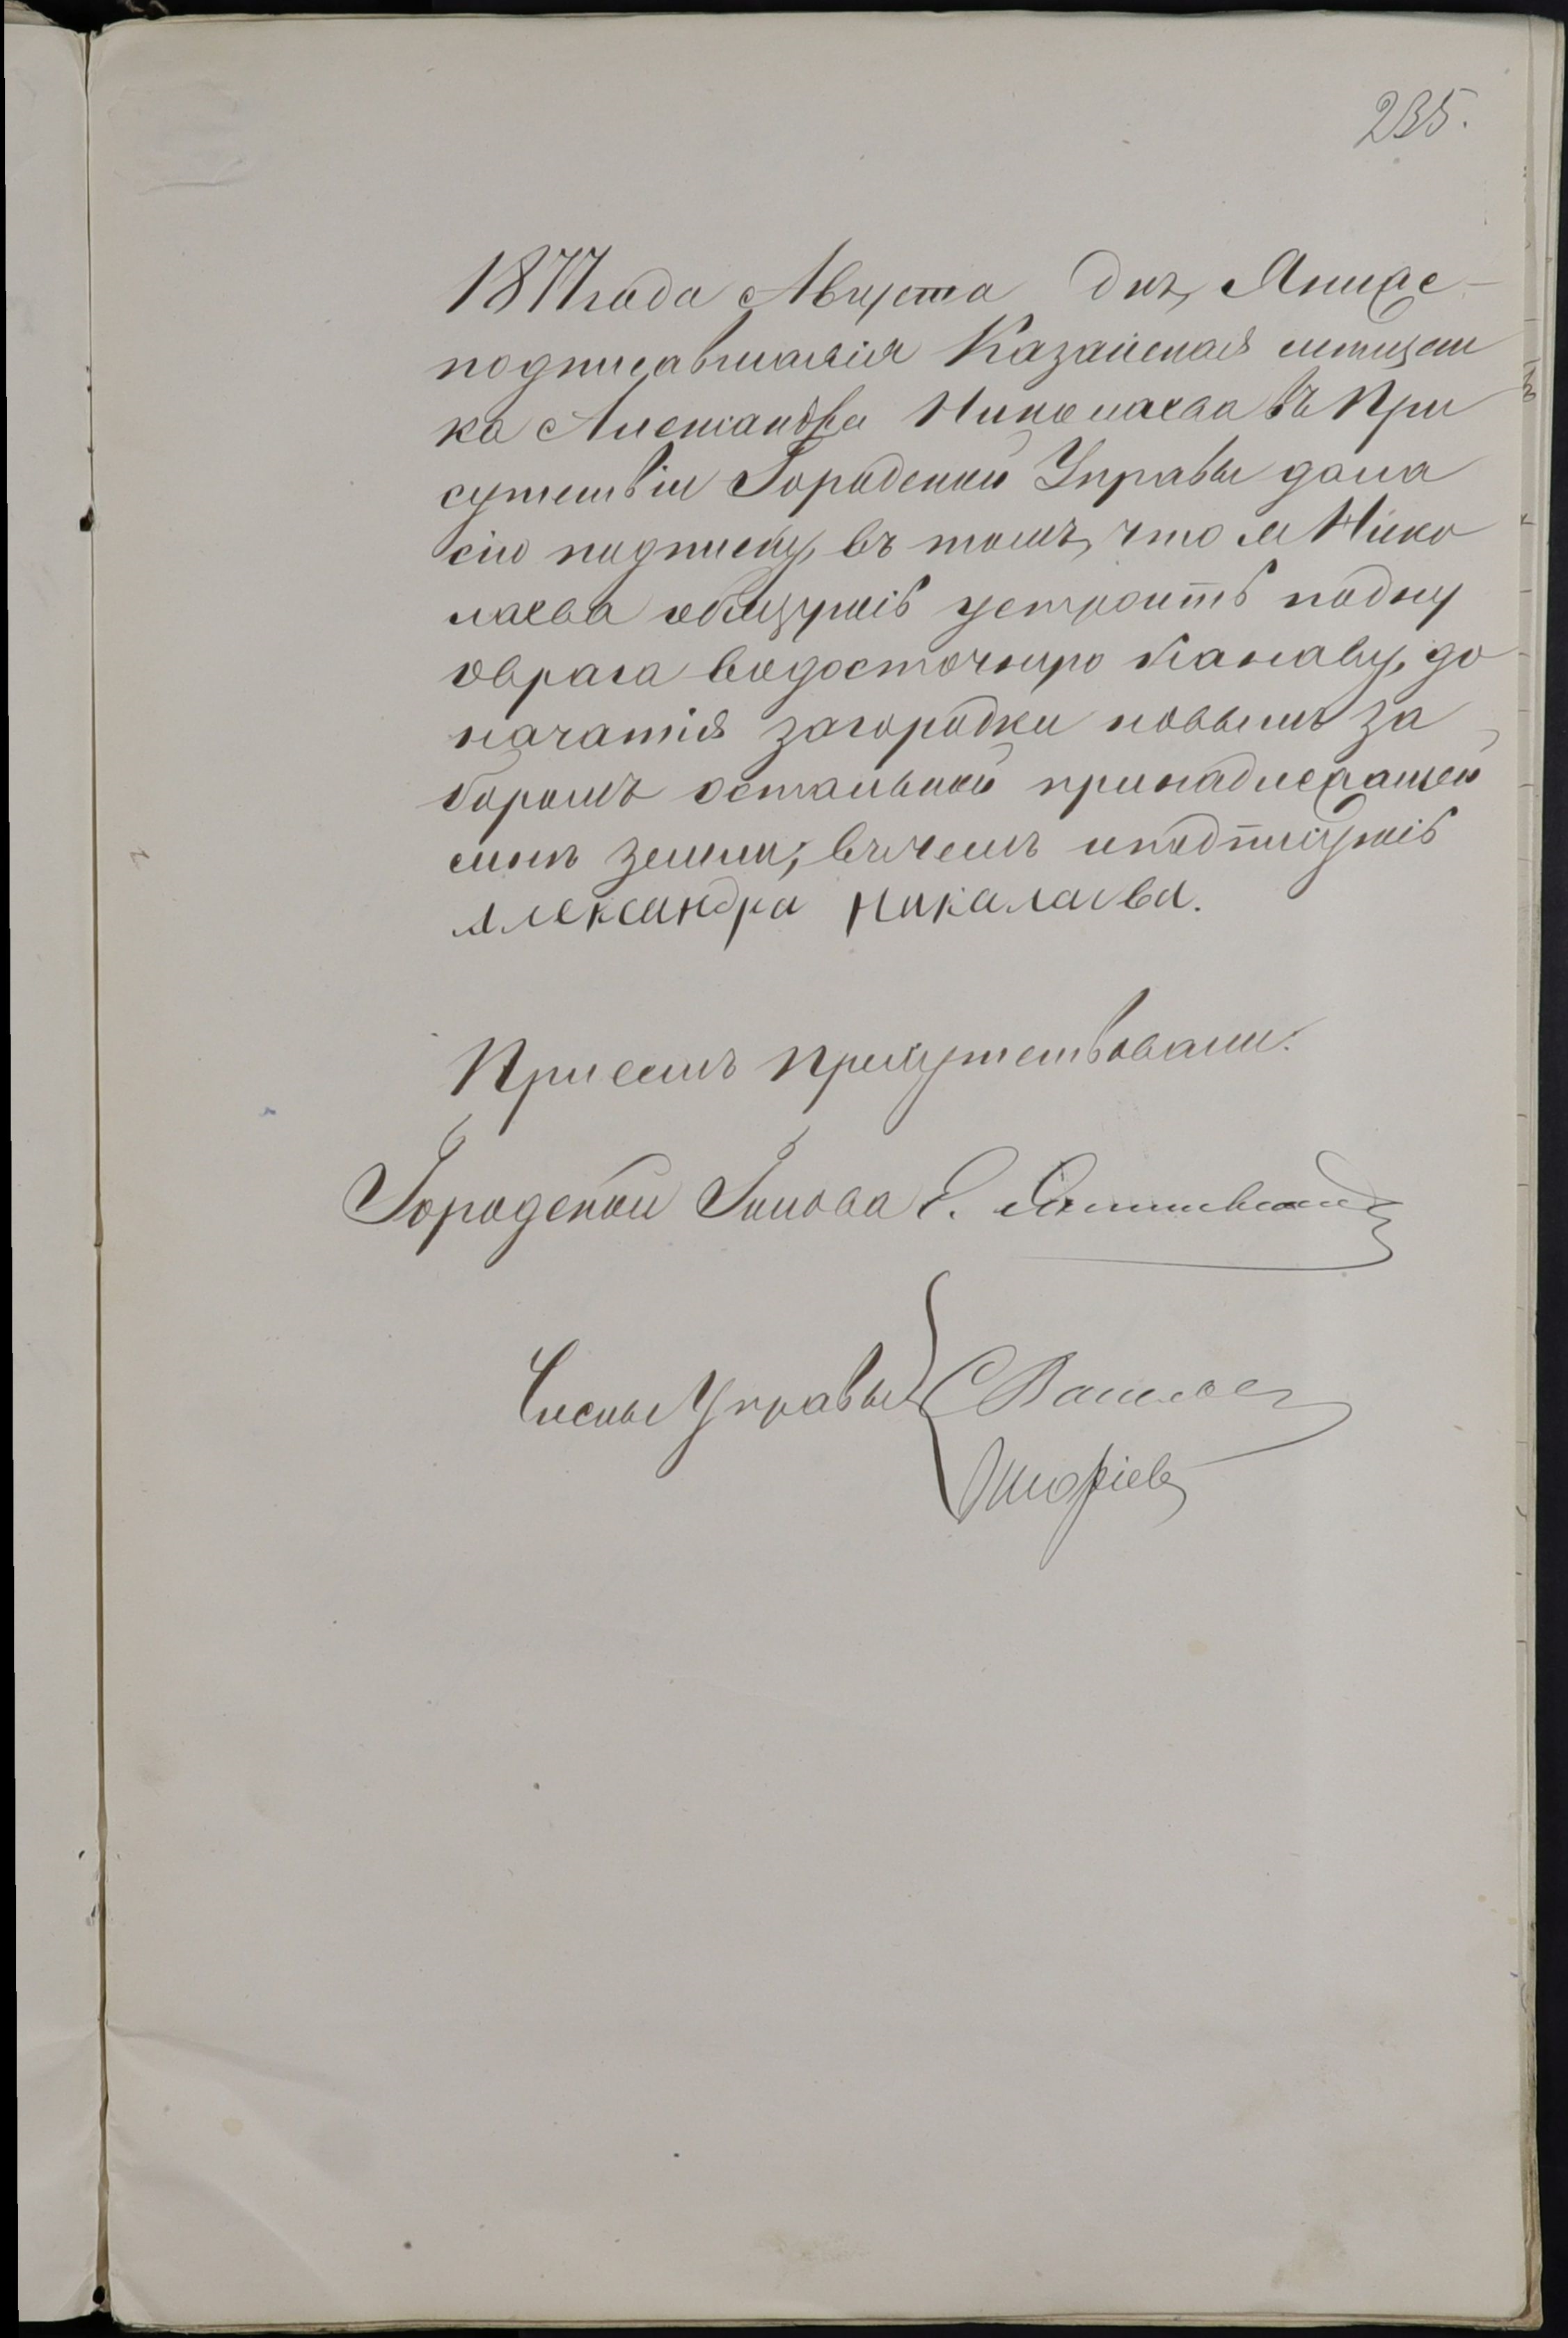 235.
1877 года Августа дня, Я ниже-
подписавшаяся Казанская мѣщан
ка Александра Николаева въ При
сутствіи Городской Управы дала
сію подписку, въ томъ, что я Нико
лаева обязуюсь устроить по дну
оврага водосточную канаву, до
начатія загородки новымъ за
боромъ остальной принадлежащей
мнѣ земли; въ чемъ и подпишусь
Александра Никалаева.
При семъ присутствовали:
Городской Голова Е.
Члены Управы